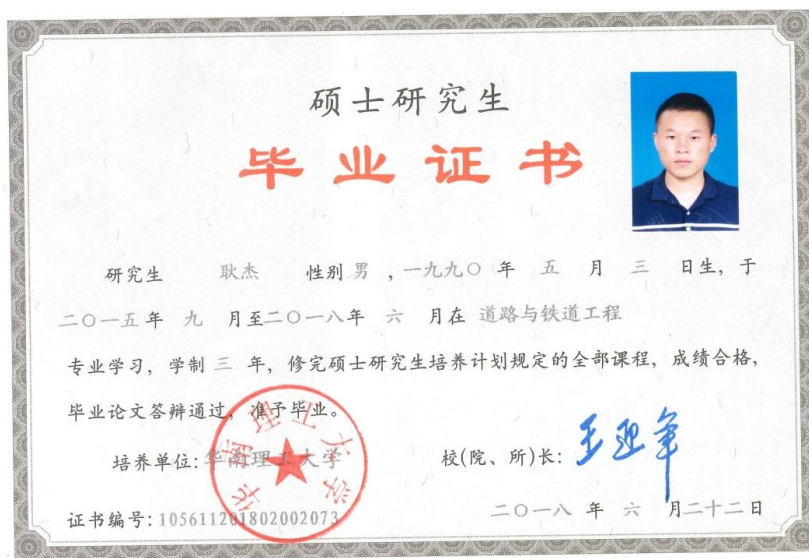 硕士研究生
毕业证书
研究生 耿杰 性别 男 ，一九九〇 年 五 月 三 日生，于
二〇一五 年 九 月至二〇一八年 六 月在 道路与铁道工程
专业学习，学制 三 年，修完硕士研究生培养计划规定的全部课程，成绩合格，
毕业论文答辩通过，准予毕业。
培养单位：华南理工大学 校(院、所)长：王迎军
华南理工大学
证书编号：105611201802002073 二〇一八 年 六 月二十二日